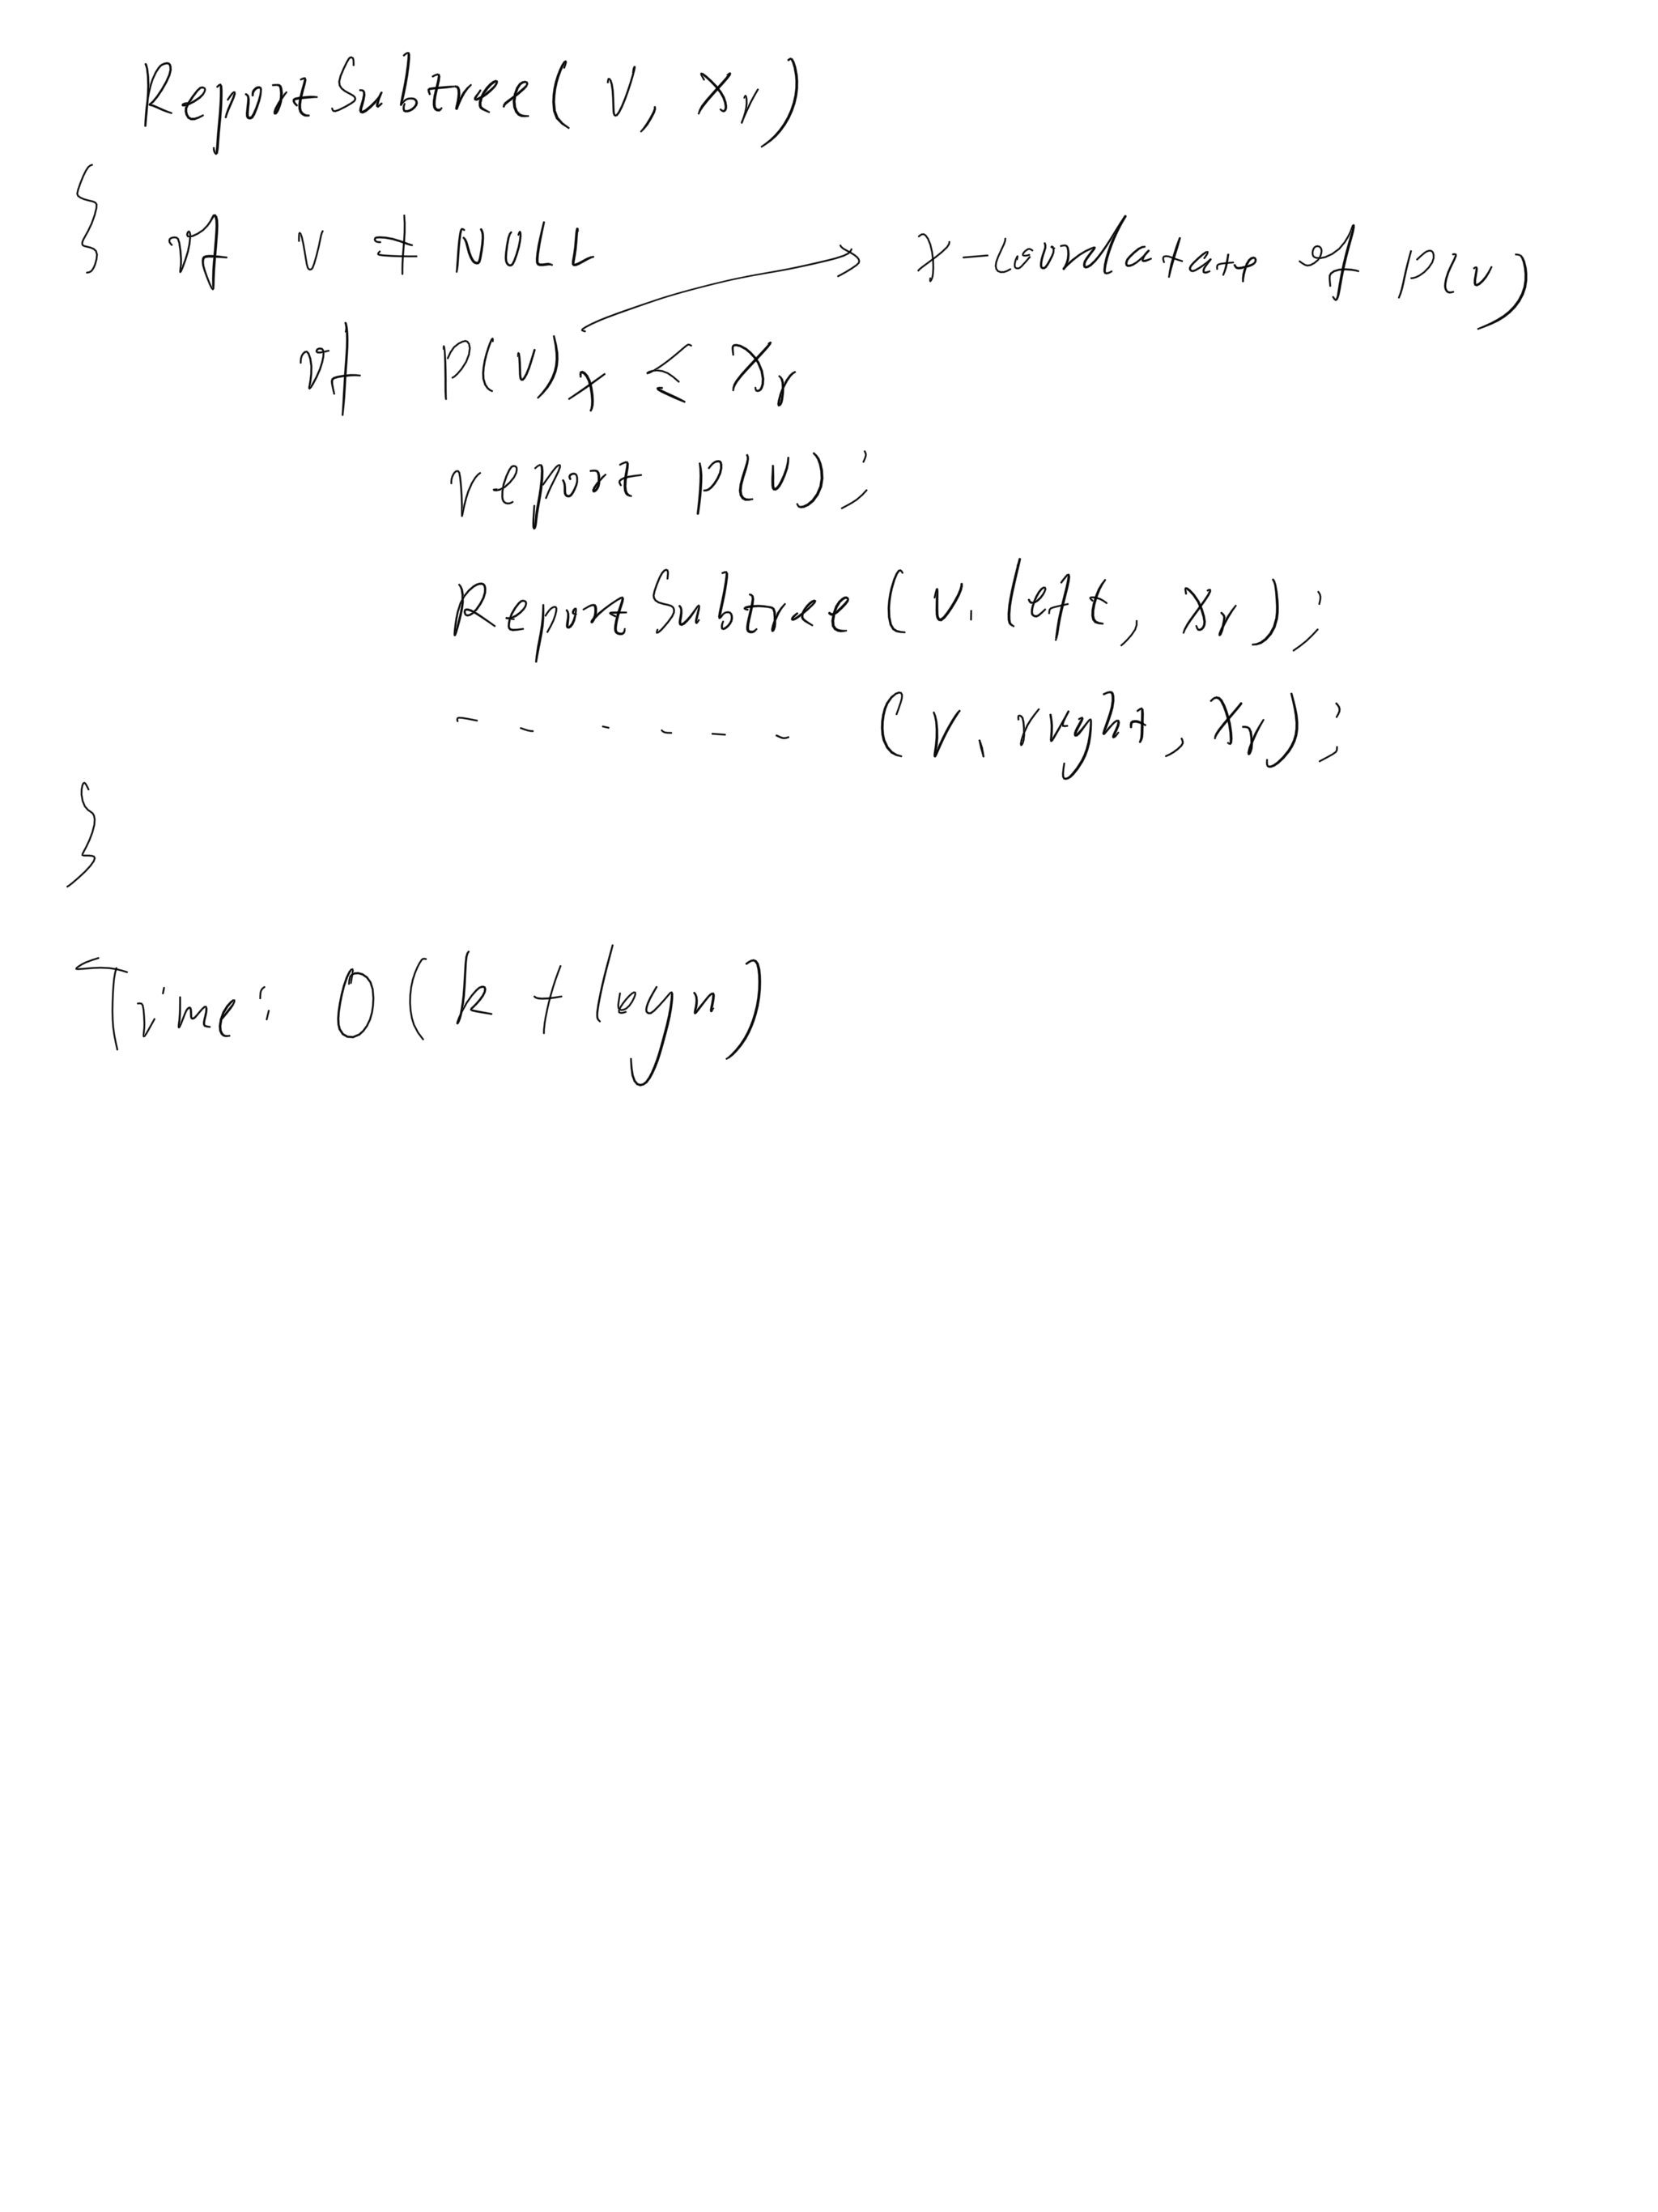 ReportSubtree(v, xr)
{
if v ≠ NULL
x-coordinate of p(v)
if p(v)x ≤ xr
report p(v);
ReportSubtree(v.left, xr);
- - - - - - (v.right, xr);
}
Time: O(k + log n)